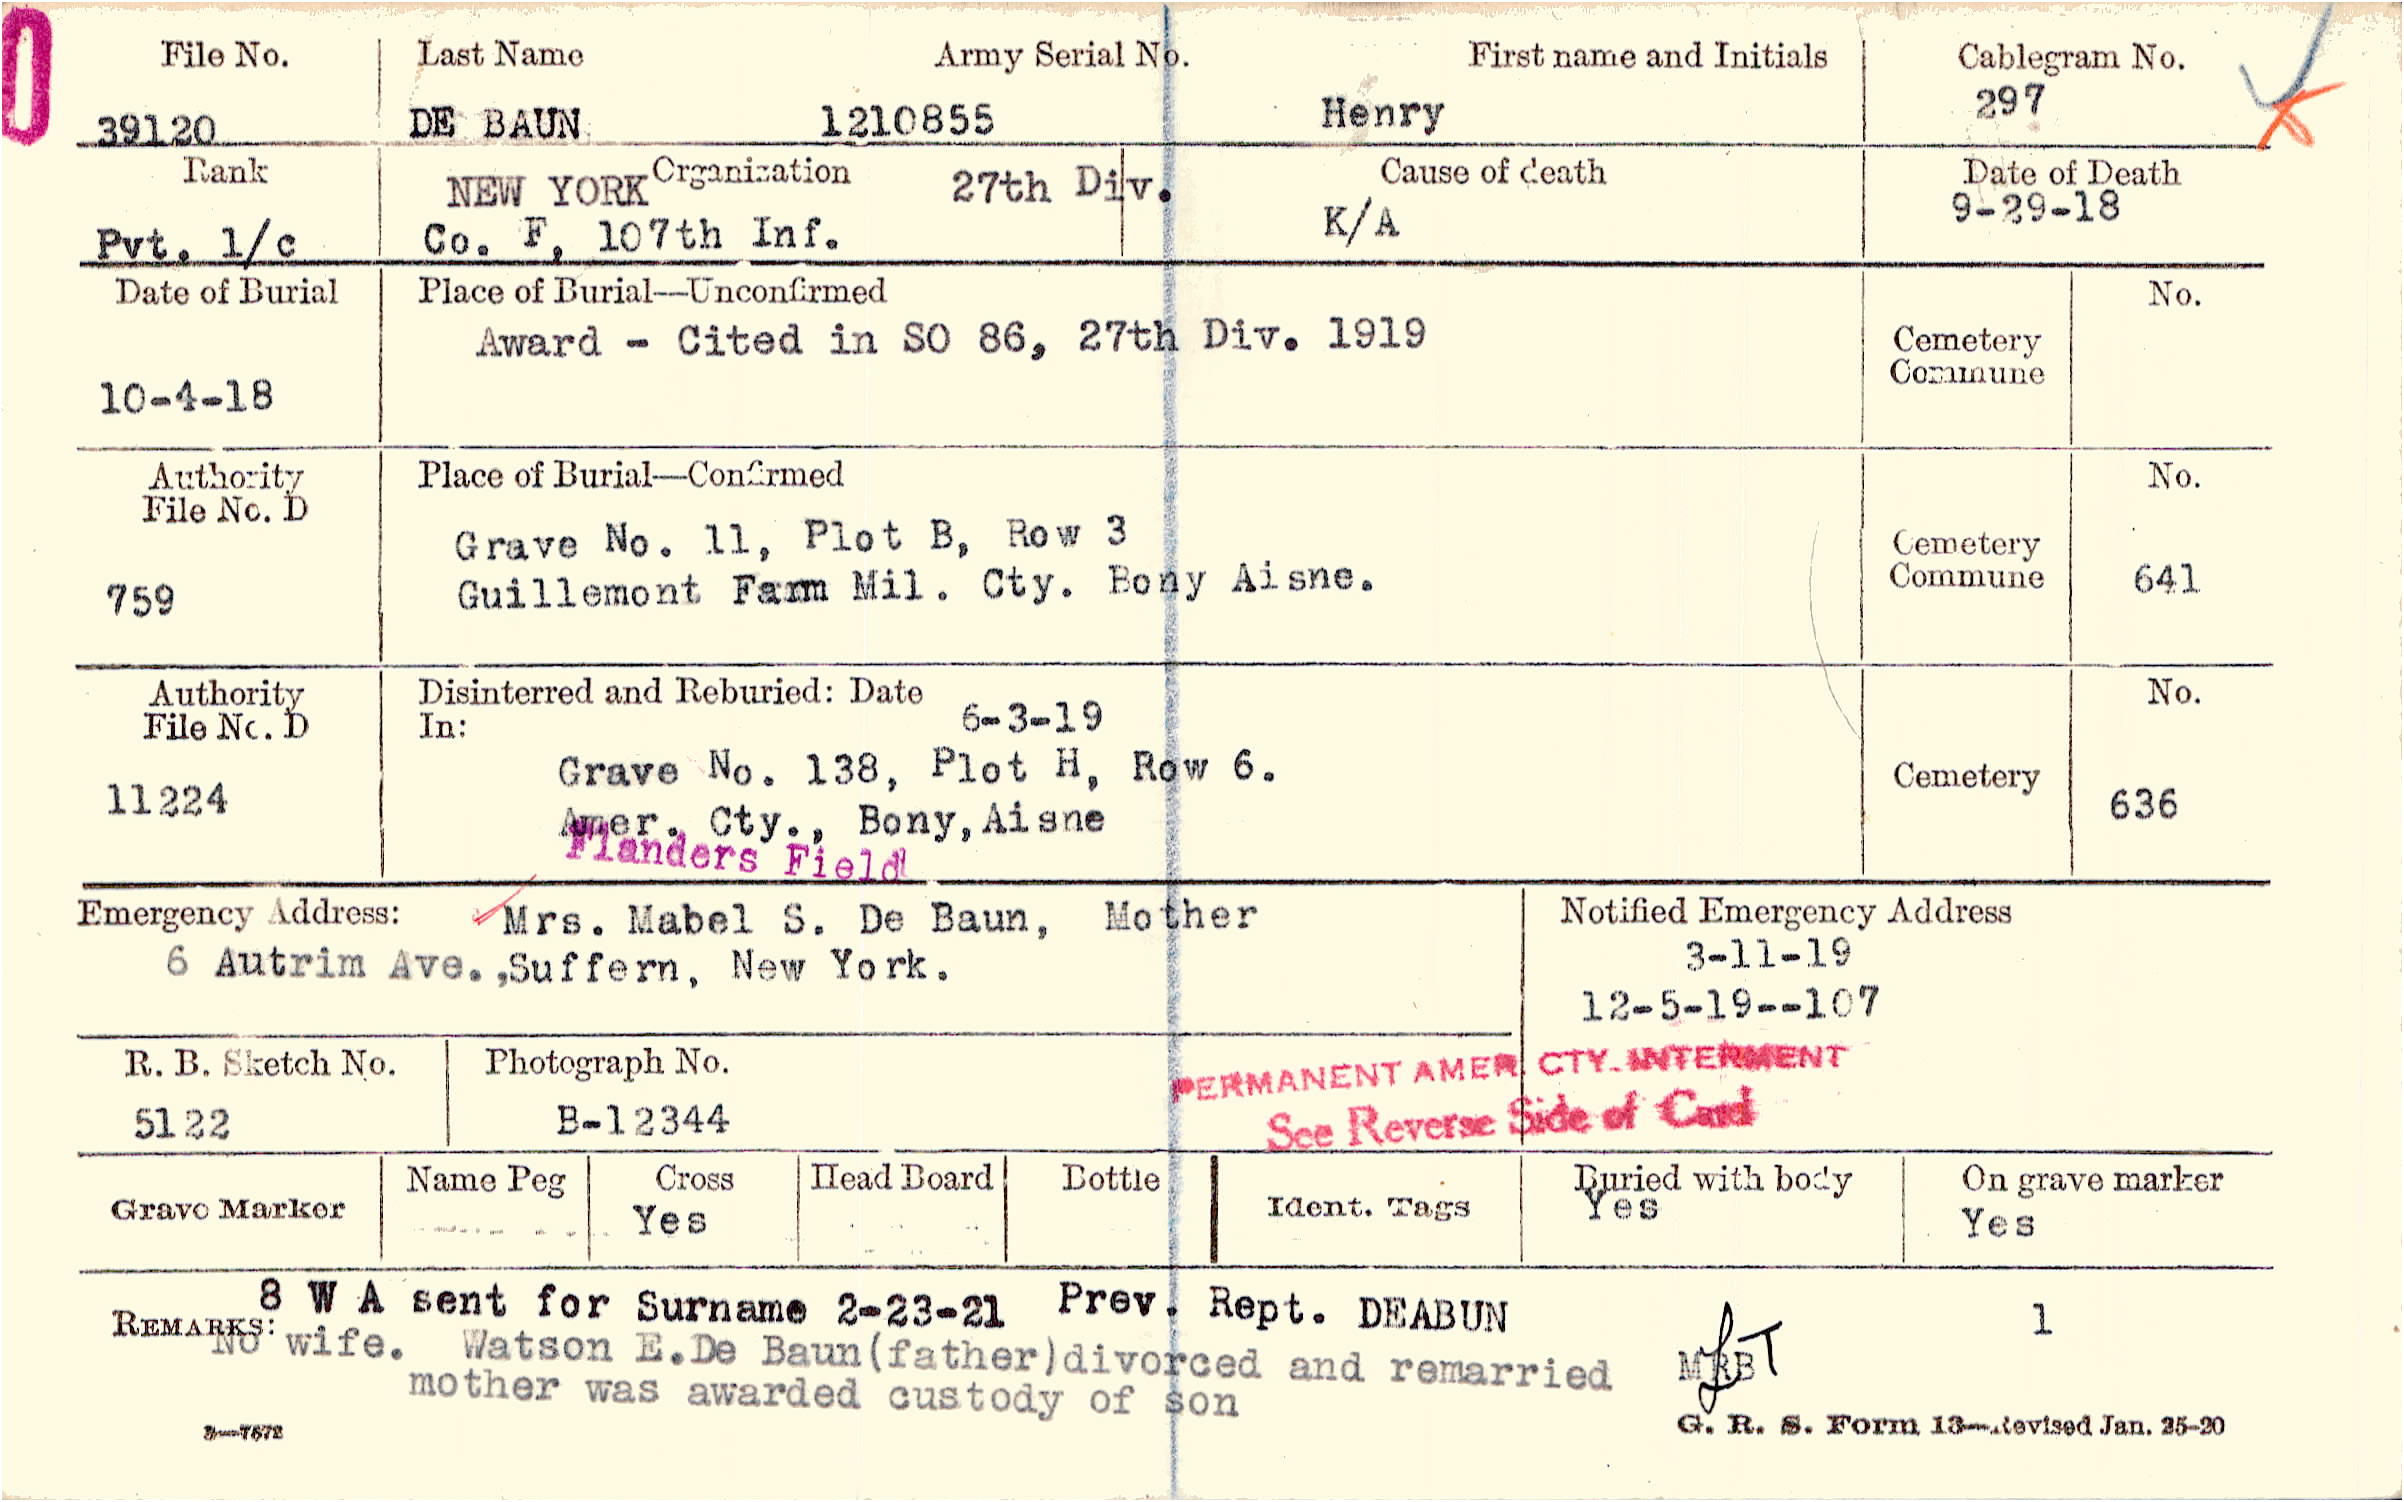 File No. Last Name Army Serial No. First name and Initials Cablegram No.
39120 DE BAUN 1210855 Henry 297
Rank Organization Cause of death Date of Death
NEW YORK 27th Div. K/A 9-29-18
Pvt. 1/c Co. F, 107th Inf.
Date of Burial Place of Burial—Unconfirmed No.
Award - Cited in SO 86, 27th Div. 1919 Cemetery
Commune
10-4-18
Authority Place of Burial—Confirmed No.
File No. D
Grave No. 11, Plot B, Row 3 Cemetery
759 Guillemont Farm Mil. Cty. Bony Aisne. Commune 641
Authority Disinterred and Reburied: Date No.
File No. D In: 6-3-19
Grave No. 138, Plot H, Row 6. Cemetery
11224 Amer. Cty., Bony, Aisne 636
Flanders Field
Emergency Address: Mrs. Mabel S. De Baun, Mother Notified Emergency Address
6 Autrim Ave.,Suffern, New York. 3-11-19
12-5-19--107
R. B. Sketch No. Photograph No. PERMANENT AMER. CTY. INTERMENT
5122 B-12344 See Reverse Side of Card
Grave Marker Name Peg Cross Head Board Bottle Ident. Tags Buried with body On grave marker
Yes Yes Yes
8 W A sent for Surname 2-23-21 Prev. Rept. DEABUN 1
REMARKS: No wife. Watson E.De Baun(father)divorced and remarried MRB
mother was awarded custody of son
3—7672 G. R. S. Form 13—Revised Jan. 25-20